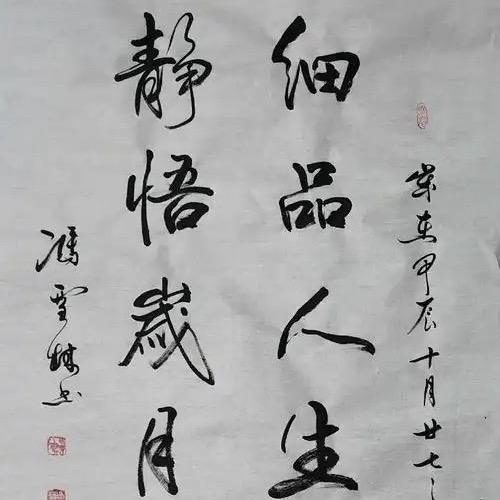 岁在甲辰十月廿七
细品人生
静悟岁月
冯雪林书